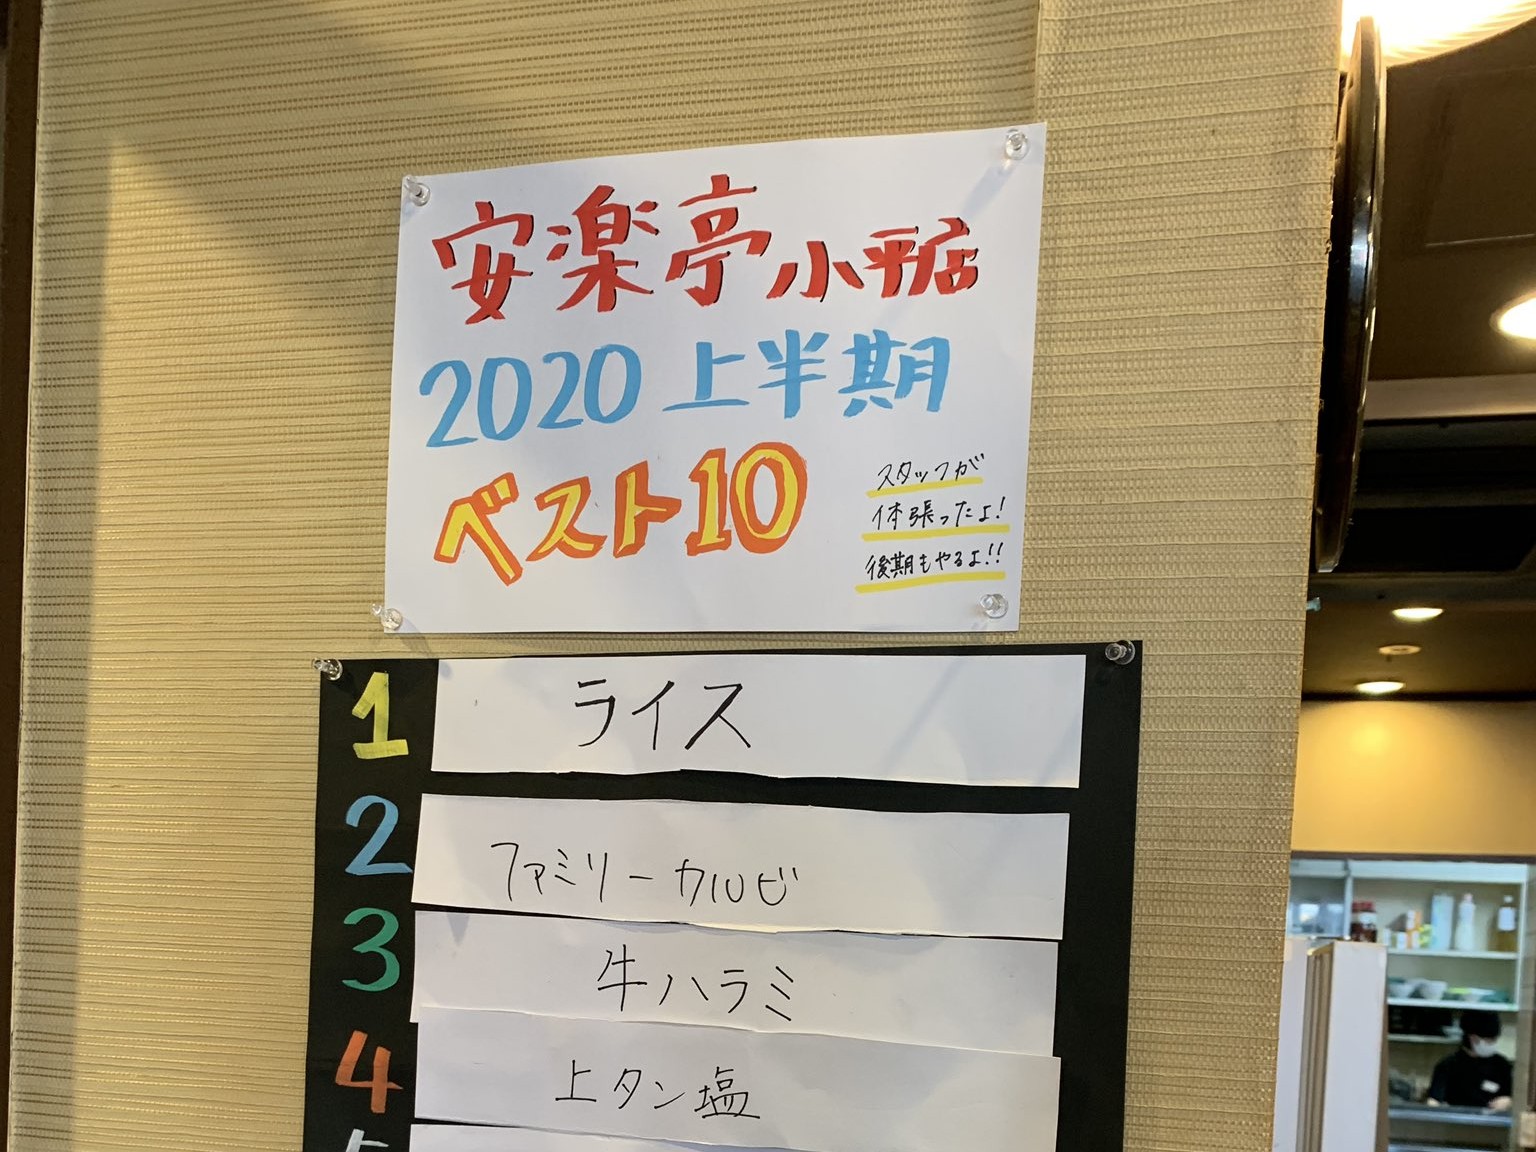 安楽亭小平店
2020上半期
ベスト10
スタッフが
体張ったよ!
後期もやるよ!!
1 ライス
2 ファミリーカルビ
3 牛ハラミ
4 上タン塩